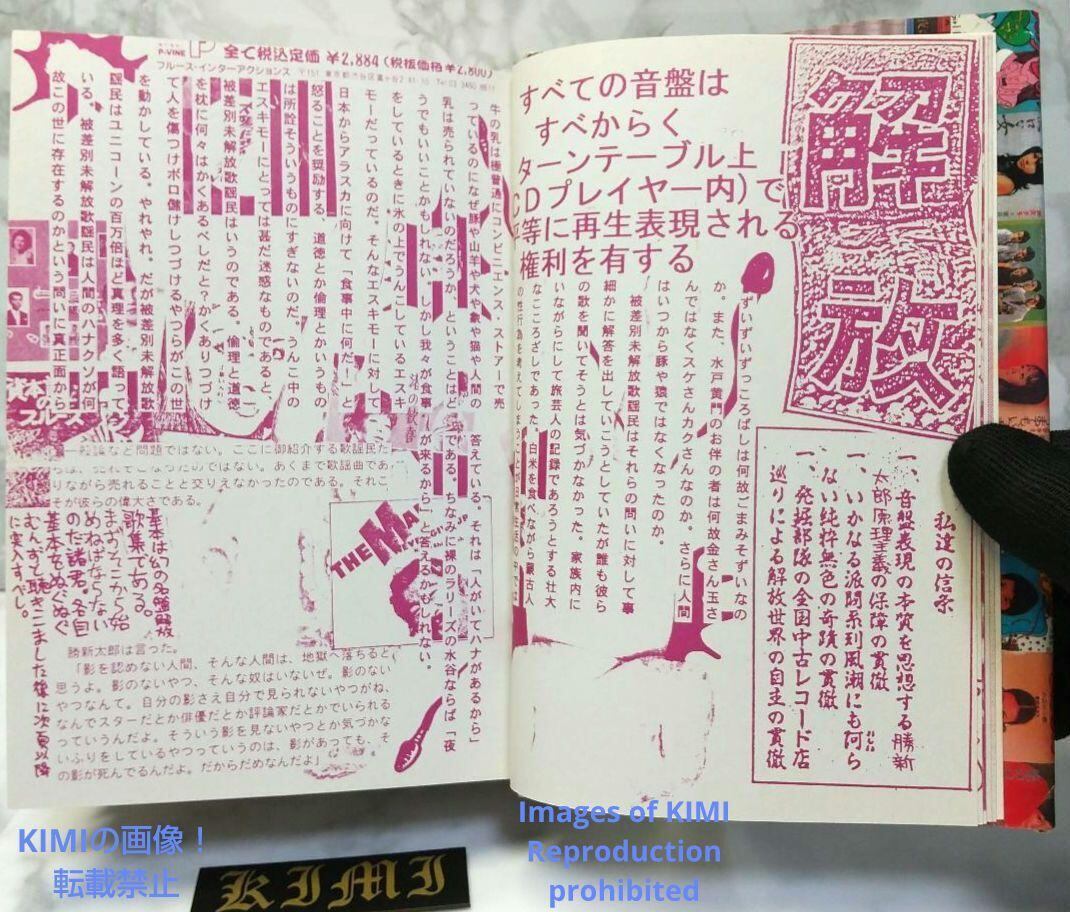 解放
すべての音盤は
すべからく
ターンテーブル上
CDプレイヤー内)で
等に再生表現される
権利を有する
私達の信条
一、音盤表現の本質を思想する勝新
太郎原理主義の保障の貫徹
一、いかなる派閥系列風潮にも何ら
ない純粋無色の奇蹟の貫徹
一、発掘部隊の全国中古レコード店
巡りによる解放世界の自主の貫徹
ずいずいずっころばしは何故ごまみそずいなの
か。また、水戸黄門のお伴の者は何故金さん玉さ
んではなくスケさんカクさんなのか。さらに人間
はいつから豚や猿ではなくなったのか。
被差別未解放歌謡民はそれらの問いに対して事
細かに解答を出していこうとしていたが誰も彼ら
の歌を聞いてそうとは気づかなかった。家族内に
いながらにして旅芸人の記録であろうとする壮大
なこころざしであった。白米を食いながら蒙古人
P-VINE LP 全て税込定価 ¥2,884 (税抜価格¥2,800)
ブルース・インターアクションズ
牛の乳は極普通にコンビニエンス・ストアーで売
っているのになぜ豚や山羊や犬や象や猫や人間の
乳は売られていないのだろうか、ということはど
うでもいいことかもしれない。しかし我々が食事
をしているときに氷の上でうんこしているエスキ
モーだっているのだ。そんなエスキモーに対して
日本からアラスカに向けて「食事中に何だ!」と
怒ることを奨励する、道徳とか倫理とかいうもの
は所詮そういうものにすぎないのだ。うんこ中の
エスキモーにとっては甚だ迷惑なものであると
被差別未解放歌謡民はいうのである。倫理と道徳
を枕に何々はかくあるべしだと?かくありつづけ
て人を傷つけボロ儲けしつづけるやつらがこの世
を動かしている。やれやれ。だが被差別未解放歌
謡民はユニコーンの百万倍ほど真理を多く語って
いる。被差別未解放歌謡民は人間のハナクソが何
故この世に存在するのかという問いに真正面から
答えている。それは「人がいてハナがあるから」
である。ちなみに裸のラリーズの水谷ならば「夜
が来るから」と答えるかもしれない。
など問題ではない。ここに御紹介する歌謡民た
のではない。あくまで歌謡曲であ
りながら売れることと交りえなかったのである。それこ
そが彼らの偉大さである。
THE
基本は幻の名盤解放
歌集である。
まずそこから始
めねばならない
のだ諸君。各自
基本をぬぐぬぐ
むんずと聴きこました後に次頁以降
に突入すべし。
勝新太郎は言った。
「影を認めない人間、そんな人間は、地獄へ落ちると
思うよ。影のないやつ、そんな奴はいないぜ。影のない
やつなんて。自分の影さえ自分で見られないやつがね、
なんでスターだとか俳優だとか評論家だとかでいられる
なっていうんだよ。そういう影を見ないやつとか気づかな
いふりをしているやつっていうのは、影があっても、そ
の影が死んでるんだよ。だからだめなんだよ」
KIMIの画像!
転載禁止
KIMI
Images of KIMI
Reproduction
prohibited